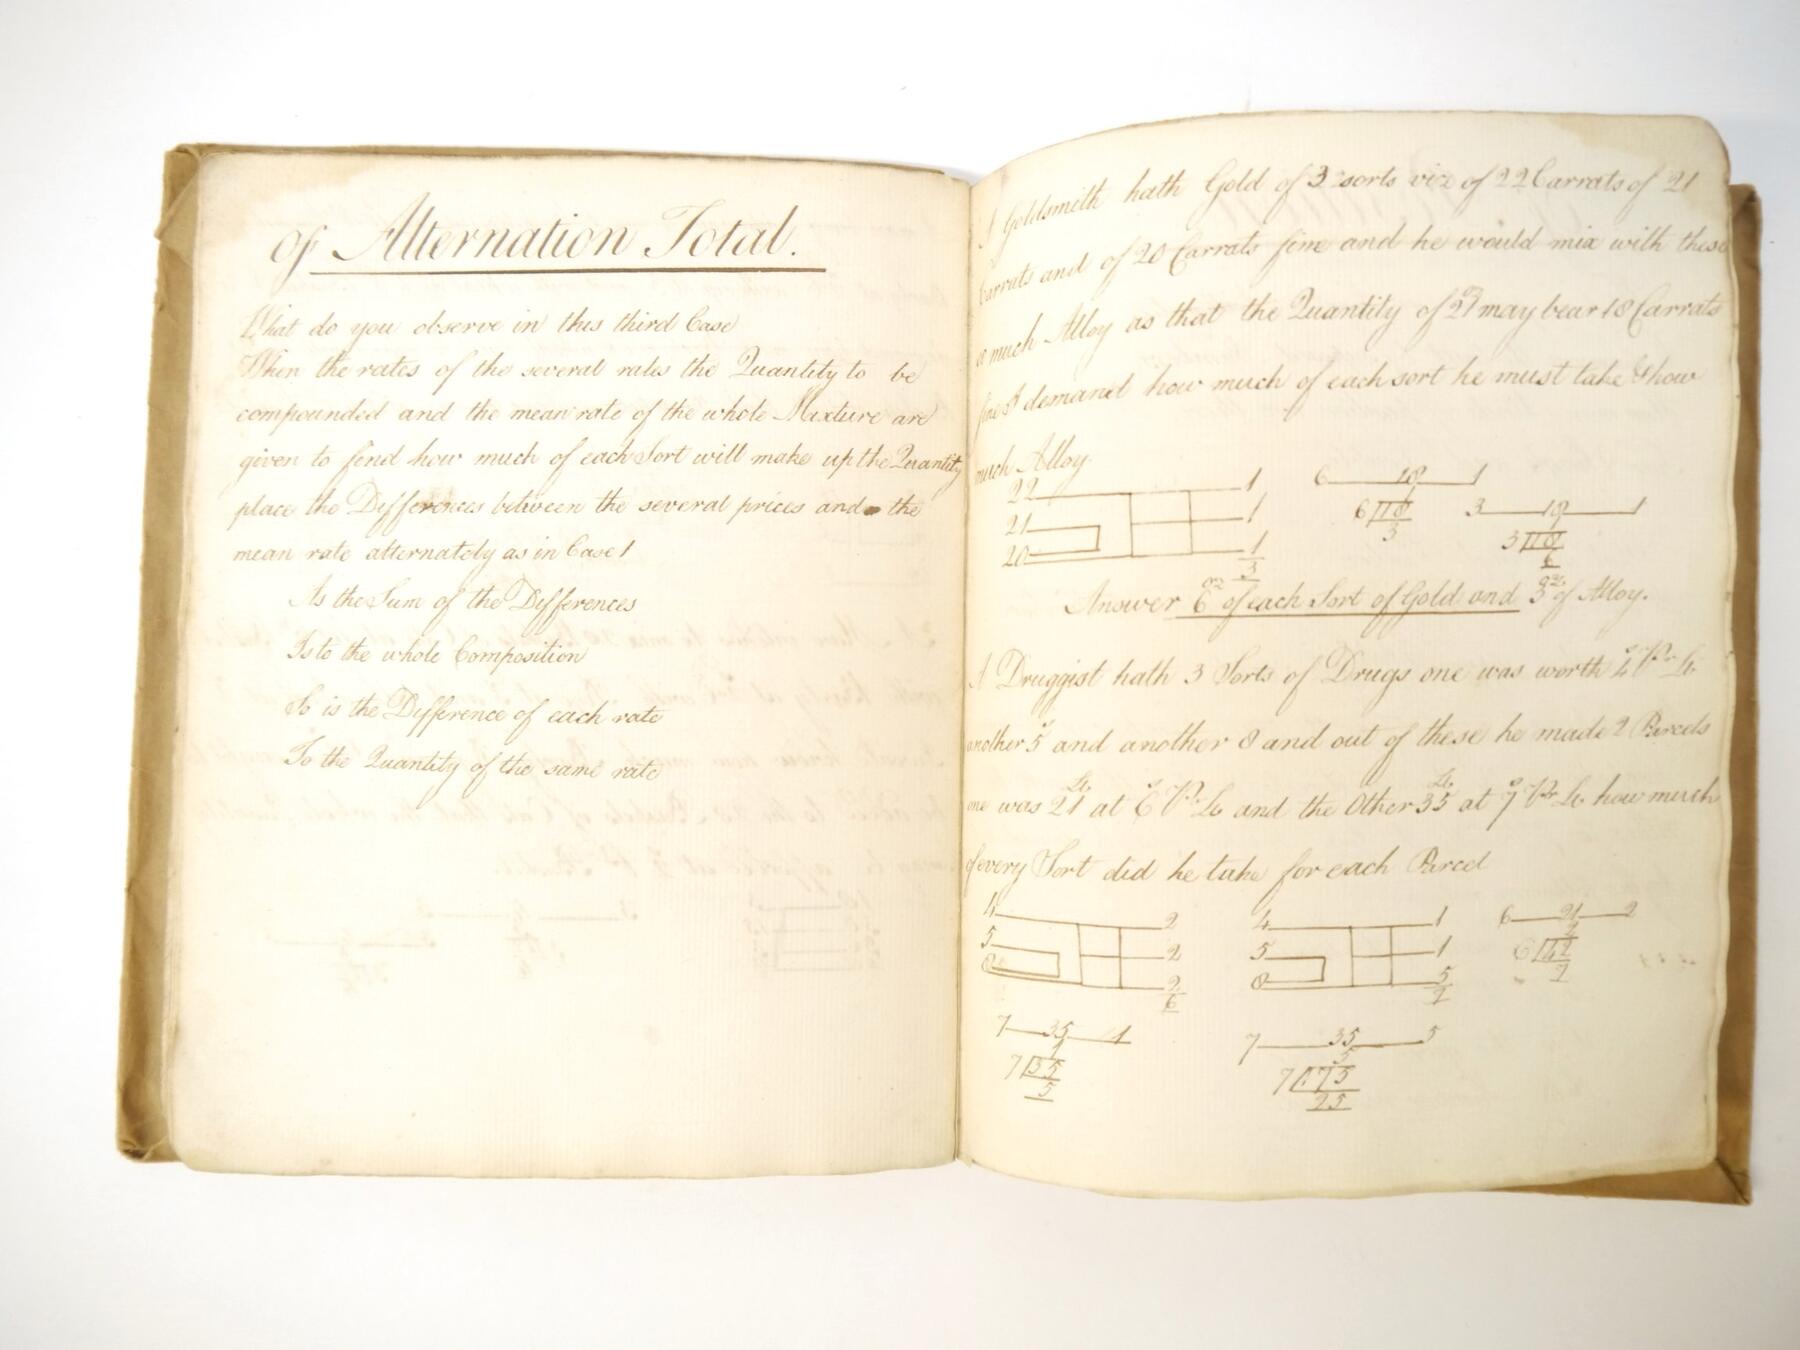 Of Alternation Total.
What do you observe in this third Case
When the rates of the several rates the Quantity to be
compounded and the mean rate of the whole Mixture are
given to find how much of each Sort will make up the Quantity
place the Differences between the several prices and the
mean rate alternately as in Case 1
As the Sum of the Differences
Is to the whole Composition
So is the Difference of each rate
To the Quantity of the same rate
A Goldsmith hath Gold of 3 sorts viz of 22 Carrats of 21
Carrats and of 20 Carrats fine and he would mix with these
as much Alloy as that the Quantity of 21 may bear 18 Carrats
fine I demand how much of each sort he must take & how
much Alloy
22 1 6 18 1
21 1 6 18 3 18 1
20 1 3 3 18
3 6
Answer 6 oz of each Sort of Gold and 3 oz of Alloy.
A Druggist hath 3 Sorts of Drugs one was worth 4s Pr lb
another 5s and another 8 and out of these he made 2 Parcels
one was 21 lb at 6s Pr lb and the Other 35 lb at 7s Pr lb how much
of every Sort did he take for each Parcel
4 2 4 1 6 21 2
5 2 5 1 2
8 2 8 5 6 42
6 7 7
7 35 1 7 35 5
1 5
7 35 7 175
5 25